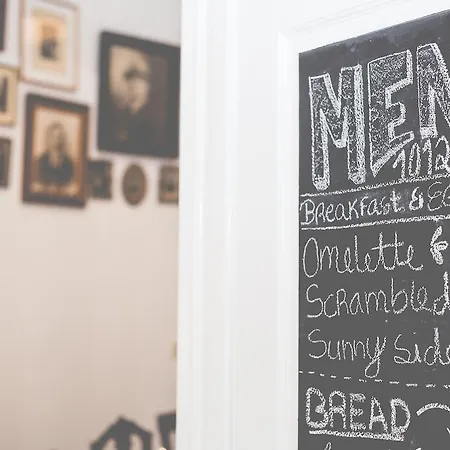 MEN
1012
Breakfast & EG
Omelette &
Scrambled
Sunny Side
BREAD